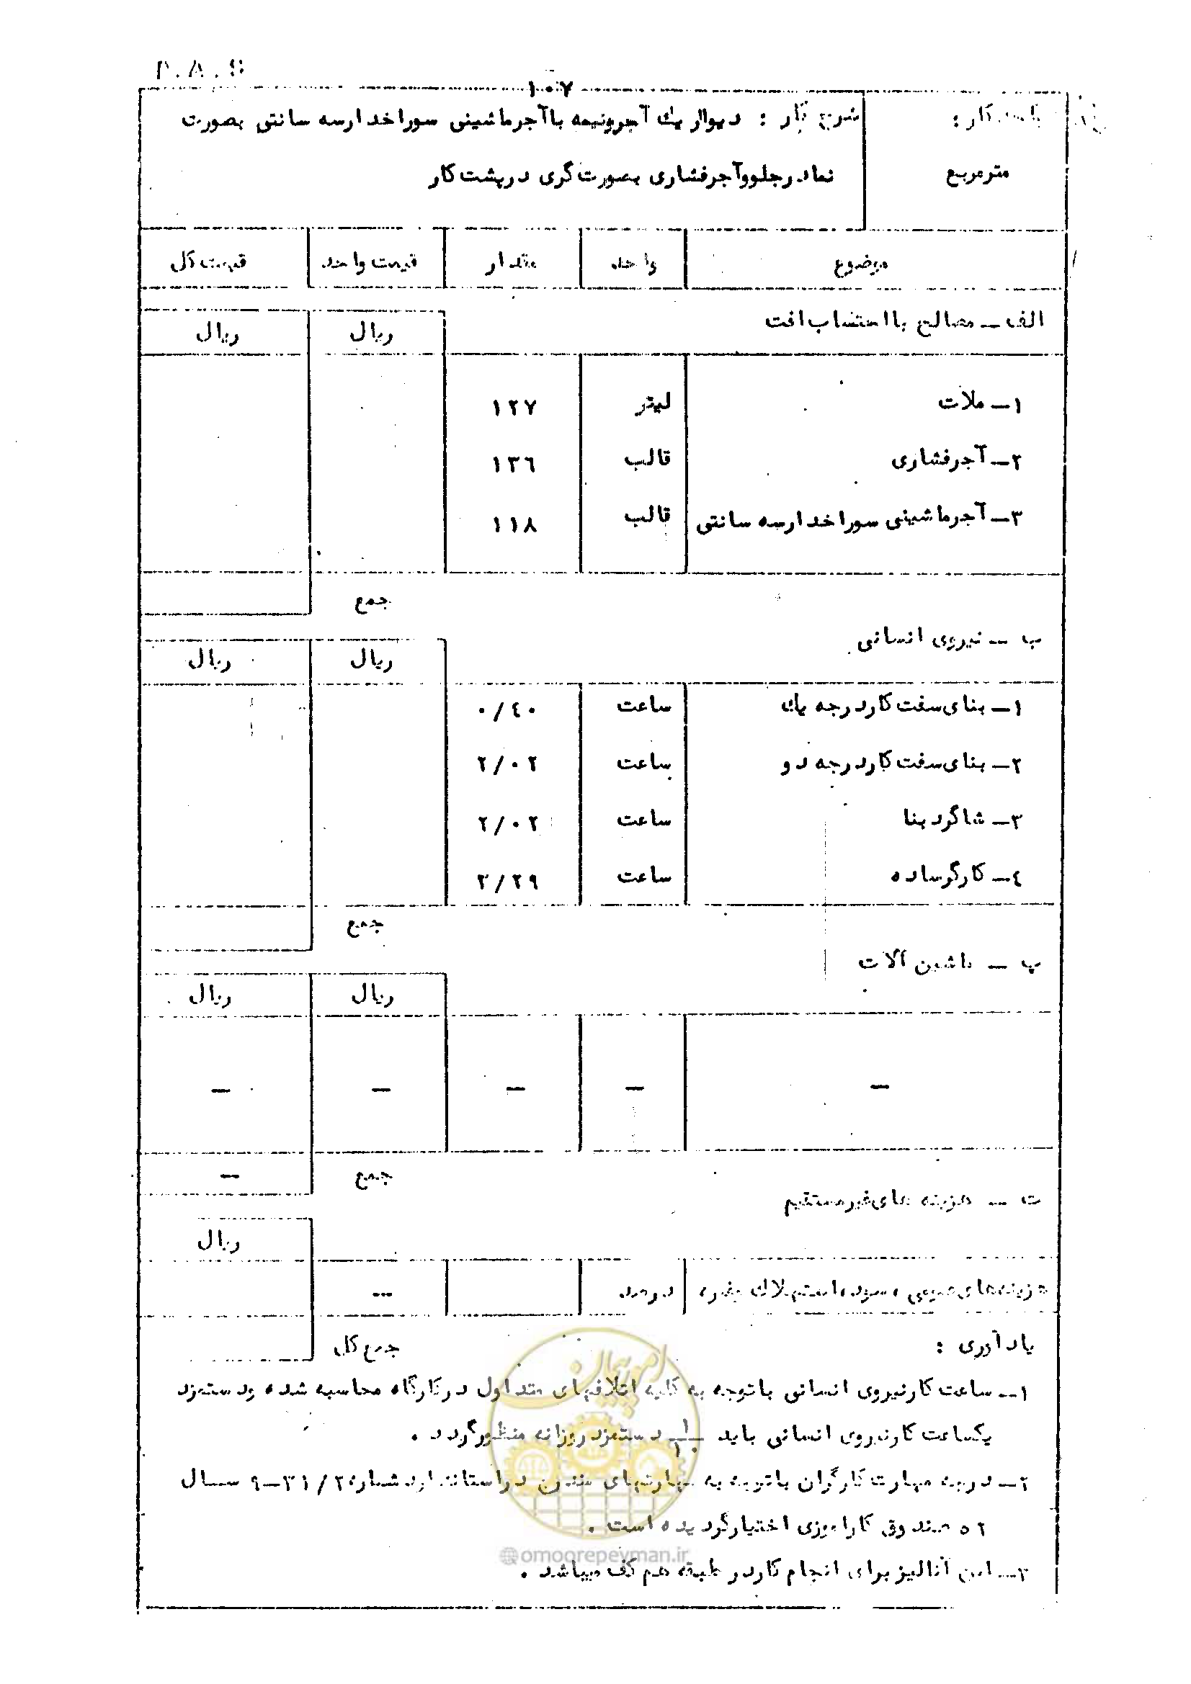 ۱۰۷
واحد کار :
شرح کار : دیوار یک آجرونیمه با آجرماشینی سوراخدار سه سانتی بصورت
مترمربع
نما در جلو و آجرفشاری بصورت گری در پشت کار
موضوع واحد مقدار قیمت واحد قیمت کل
الف ــ مصالح با احتساب افت
ریال ریال
۱ــ ملات لیتر ۱۲۷
۲ــ آجرفشاری قالب ۱۳۶
۳ــ آجرماشینی سوراخدار سه سانتی قالب ۱۱۸
جمع
ب ــ نیروی انسانی
ریال ریال
۱ــ بنای سفت کار درجه یک ساعت ۰/۴۰
۲ــ بنای سفت کار درجه دو ساعت ۲/۰۲
۳ــ شاگرد بنا ساعت ۲/۰۲
۴ــ کارگر ساده ساعت ۳/۲۹
جمع
پ ــ ماشین آلات
ریال ریال
ــ ــ ــ ــ ــ
جمع ــ
ت ــ هزینه های غیرمستقیم
ریال
هزینه‌های عمومی ، سود، استهلاک و غیره درصد ــ
جمع کل
یادآوری :
۱ــ ساعت کار نیروی انسانی با توجه به کلیه اتلافهای متداول در کارگاه محاسبه شده و دستمزد
یکساعت کار نیروی انسانی باید ۱/۱۰ دستمزد روزانه منظور گردد .
۲ــ درجه مهارت کارگران با توجه به مهارتهای مندرج در استاندارد شماره ۲/۳۱ــ۹ سال
۲۵ صندوق کارآموزی اختیار گردیده است .
۳ــ این آنالیز برای انجام کار در طبقه هم کف میباشد .
امور پیمان
@omoorepeyman.ir